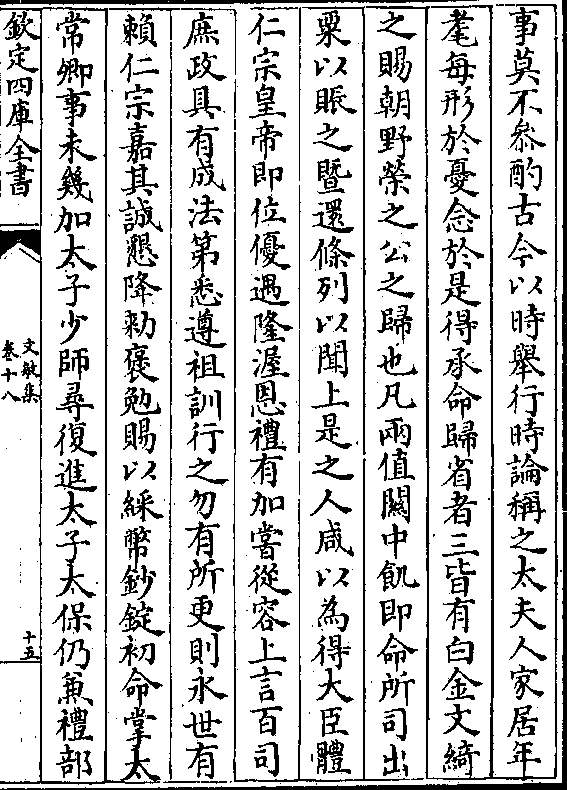 事莫不叅酌古今以時舉行時論稱之太夫人家居年
耄每形於憂念於是得承命歸省者三皆有白金文綺
之賜朝野榮之公之歸也凡兩值關中飢即命所司出
粟以賑之暨還條列以聞上是之人咸以為得大臣體
仁宗皇帝即位優遇隆渥恩禮有加嘗從容上言百司
庶政具有成法第悉遵祖訓行之勿有所更則永世有
賴仁宗嘉其誠懇降勑褒勉賜以綵幣鈔錠初命掌太
常卿事未幾加太子少師尋復進太子太保仍兼禮部
欽定四庫全書
文敏集
卷十八
十五